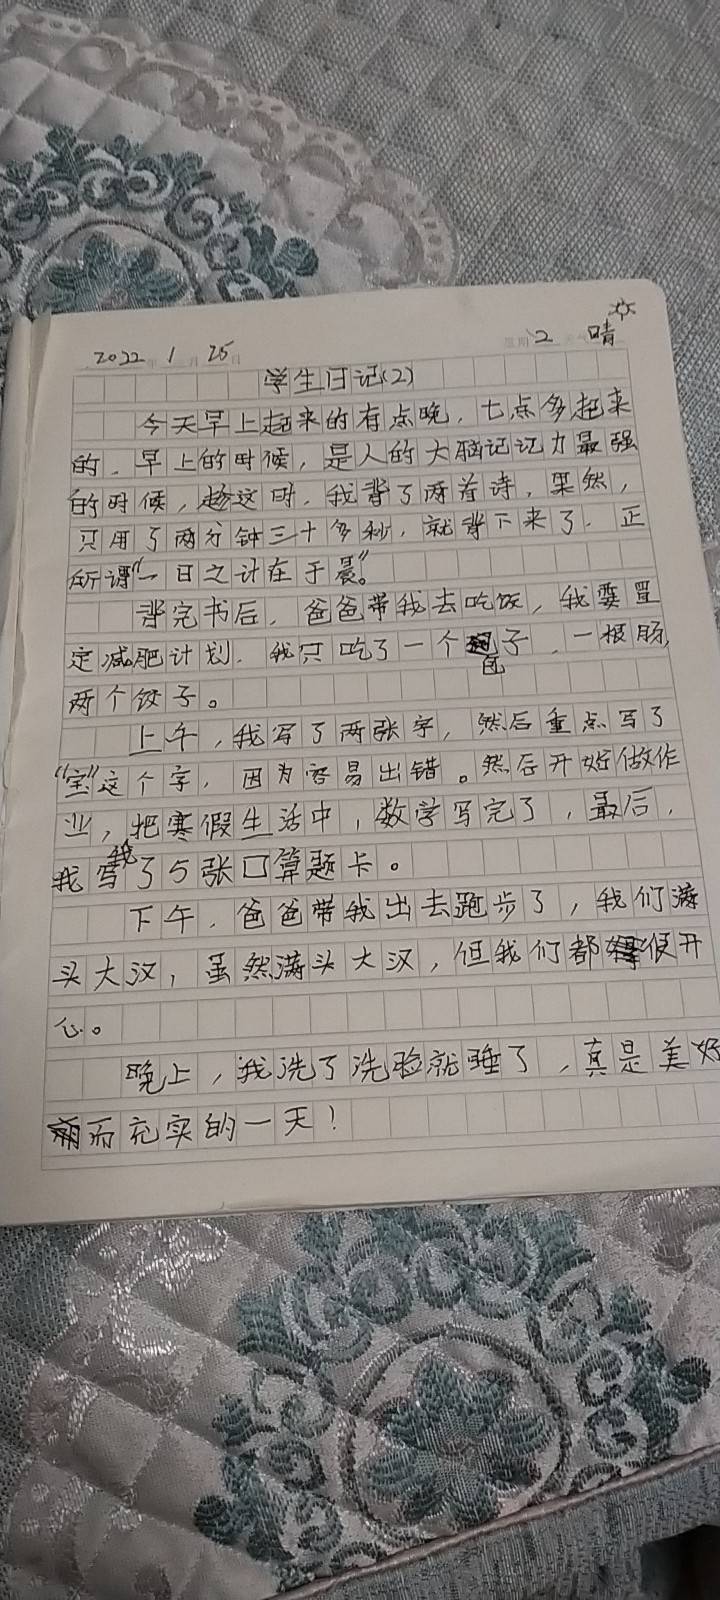 2022年1月25日 星期2 天气晴
学生日记(2)
今天早上起来的有点晚，七点多起来
的，早上的时候，是人的大脑记记力最强
的时候，趁这时，我背了两首诗，果然，
只用了两分钟三十多秒，就背下来了，正
所谓“一日之计在于晨”。
背完书后，爸爸带我去吃饭，我要置
定减肥计划，我只吃了一个包子，一根肠，
两个饺子。
上午，我写了两张字，然后重点写了
“宝”这个字，因为容易出错。然后开始做作
业，把寒假生活中，数学写完了，最后，
我写了5张口算题卡。
下午，爸爸带我出去跑步了，我们满
头大汉，虽然满头大汉，但我们都很开
心。
晚上，我洗了洗脸就睡了，真是美好
而充实的一天！